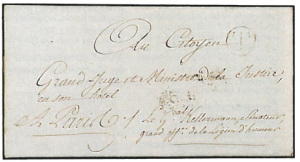 Au Citoyen
Grand Juge et Ministre de la Justice,
en son hôtel
A Paris
Le Gal Kellermann, Sénateur,
grand offr. de la légion d'honneur